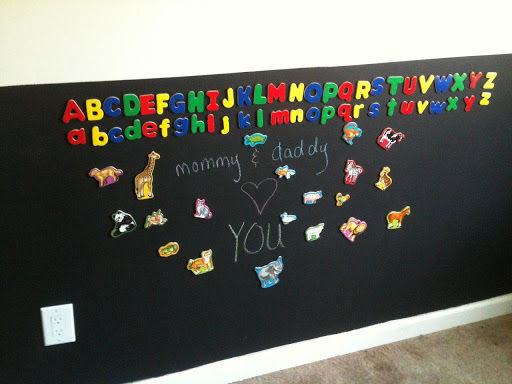 ABCDEFGHIJKLMNOPQRSTUVWXYZ
abcdefghijklmnopqrstuvwxyz
mommy & daddy
♥
YOU